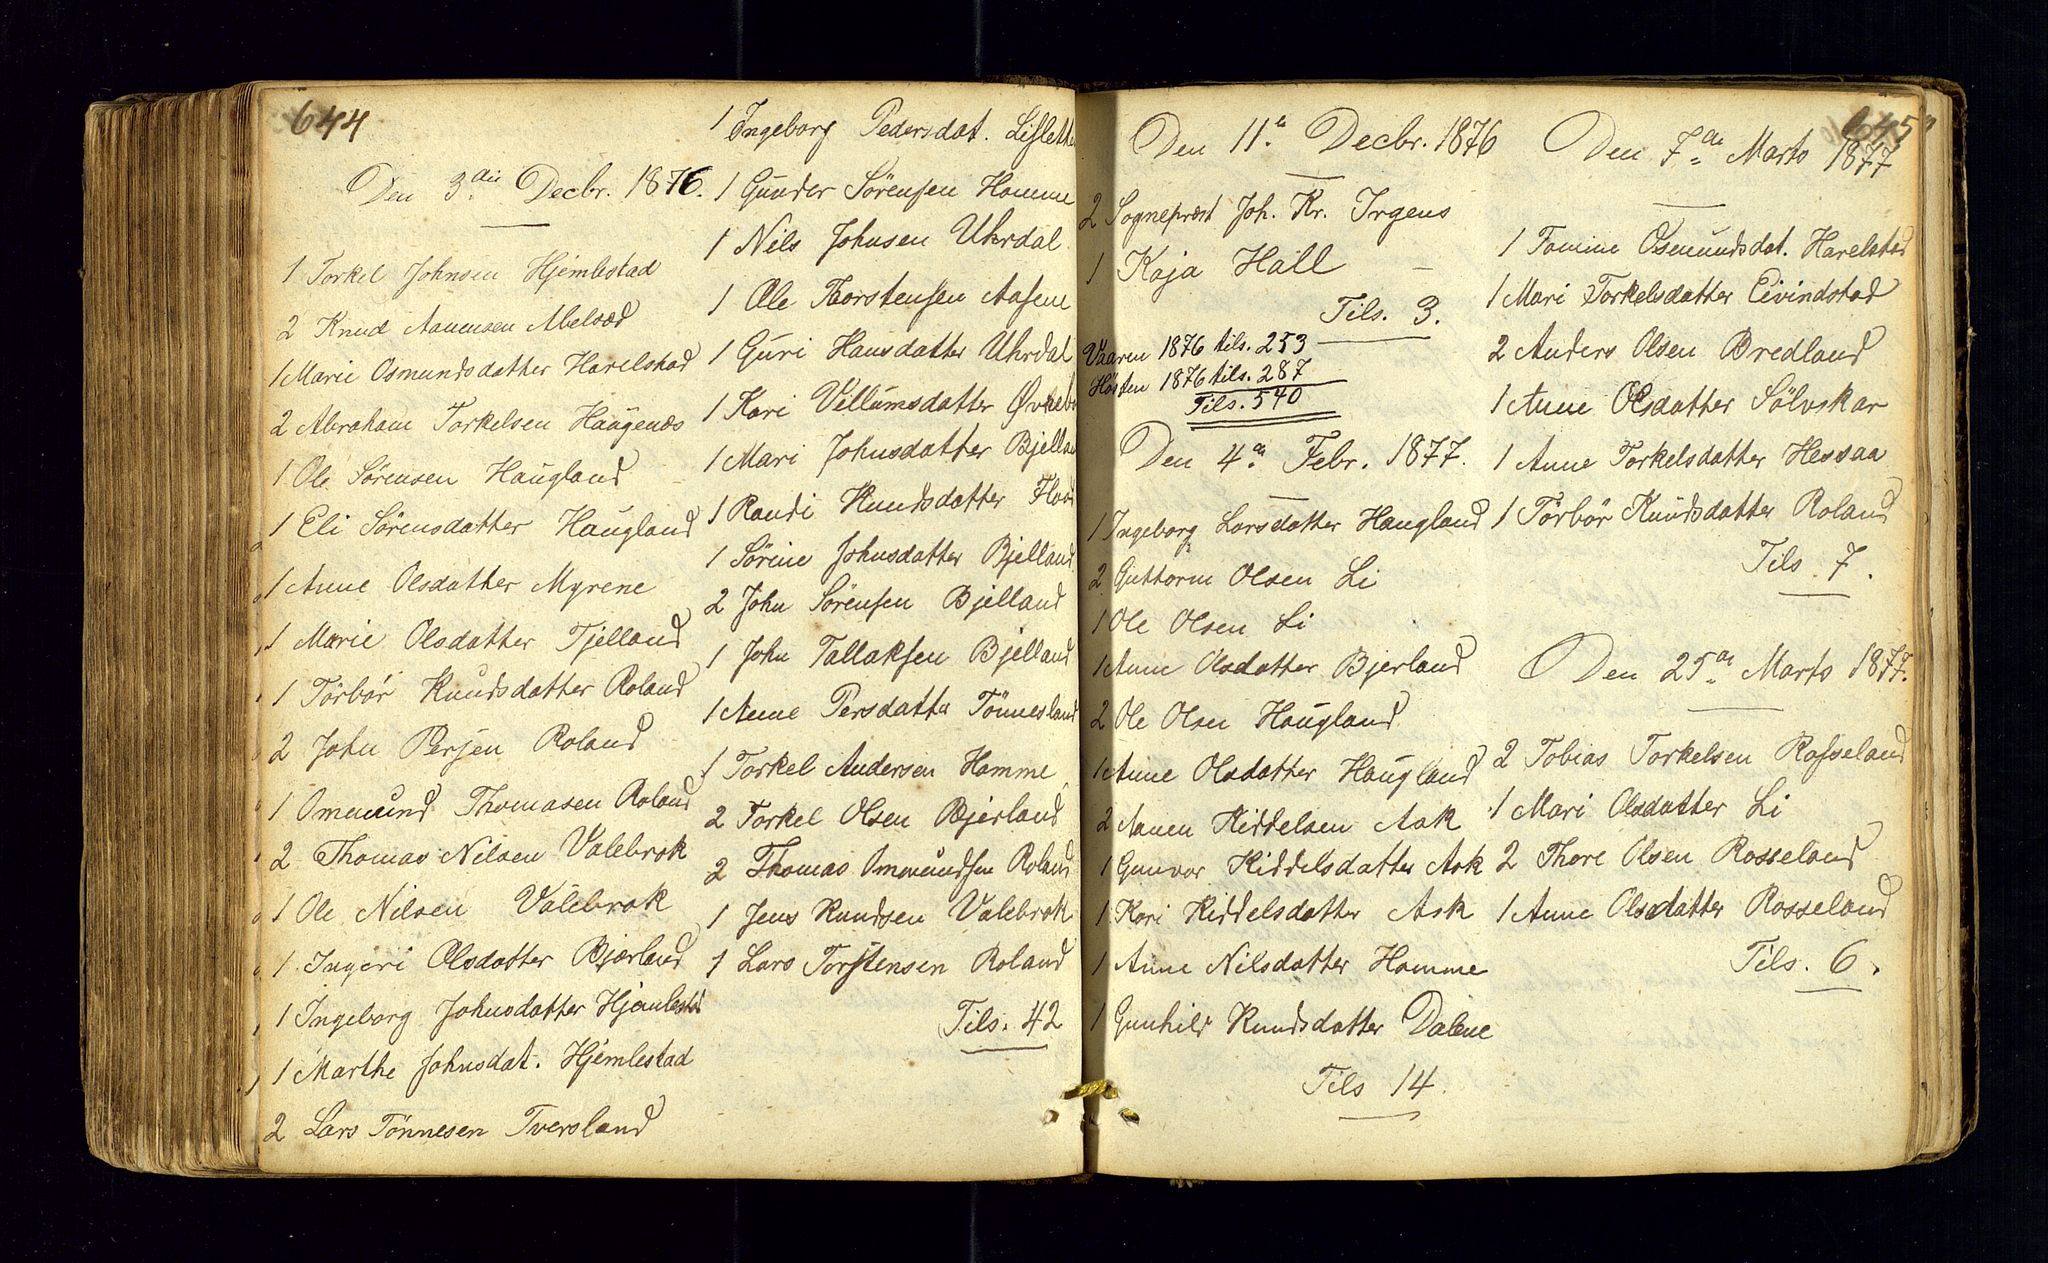 644
Den 3die Decbr. 1876.
1 Torkel Johnsen Hjemlestad
2 Knud Aanensen Abelsæd
1 Marie Osmundsdatter Harelstad
2 Abraham Torkelsen Haugenæs
1 Ole Sörensen Haugland
1 Eli Sörensdatter Haugland
1 Anne Olsdatter Myrene
1 Marie Olsdatter Tjelland
1 Törbör Knudsdatter Roland
2 John Persen Roland
1 Ommund Thomasen Roland
2 Thomas Nilsen Valebrok
1 Ole Nilsen Valebrok
1 Ingeri Olsdatter Bjærland
1 Ingeborg Johnsdatter Hjemlestad
1 Marthe Johnsdat. Hjemlestad
2 Lars Tönnesen Tversland
1 Ingeborg Pedersdat.
1 Gunder Sörensen Homme
1 Nils Johnsen Uhrdal
1 Ole Thorstensen Aasene
1 Guri Hansdatter Uhrdal
1 Kari Villumsdatter
1 Mari Johnsdatter Bjelland
1 Randi Knudsdatter
1 Sörine Johnsdatter Bjelland
2 John Sörensen Bjelland
1 John Tallaksen Bjelland
1 Anne Persdatter Tönnesland
1 Torkel Andersen Homme
2 Torkel Olsen Bjerland
2 Thomas Ommundsen Roland
1 Jens Knudsen Valebrok
1 Lars Torstensen Roland
Tils. 42
645
Den 11te Decbr. 1876
2 Sognepræst Joh. Kr. Irgens
1 Kaja Hall
Tils. 3.
Vaaren 1876 tils. 253
Hösten 1876 tils. 287
Tils. 540
Den 4de Febr. 1877.
1 Ingeborg Larsdatter Haugland
2 Guttorm Olsen Li
1 Ole Olsen Li
1 Anne Olsdatter Bjerland
2 Ole Olsen Haugland
1 Anne Olsdatter Haugland
2 Aanen Kiddelsen Ask
1 Gunvor Kiddelsdatter Ask
1 Kari Kiddelsdatter Ask
1 Anne Nilsdatter Homme
1 Gunhild Knudsdatter Dalene
Tils 14.
Den 7de Marts 1877
1 Tomine Osmundsdat. Harelstad
1 Mari Torkelsdatter Eivindstad
2 Anders Olsen Bredland
1 Anne Olsdatter Sölvskar
1 Anne Torkelsdatter Hessaa
1 Törbör Knudsdatter Roland
Tils. 7.
Den 25de Marts 1877.
2 Tobias Torkelsen Rosseland
1 Mari Olsdatter Li
2 Thore Olsen Rosseland
1 Anne Olsdatter Rosseland
Tils. 6.